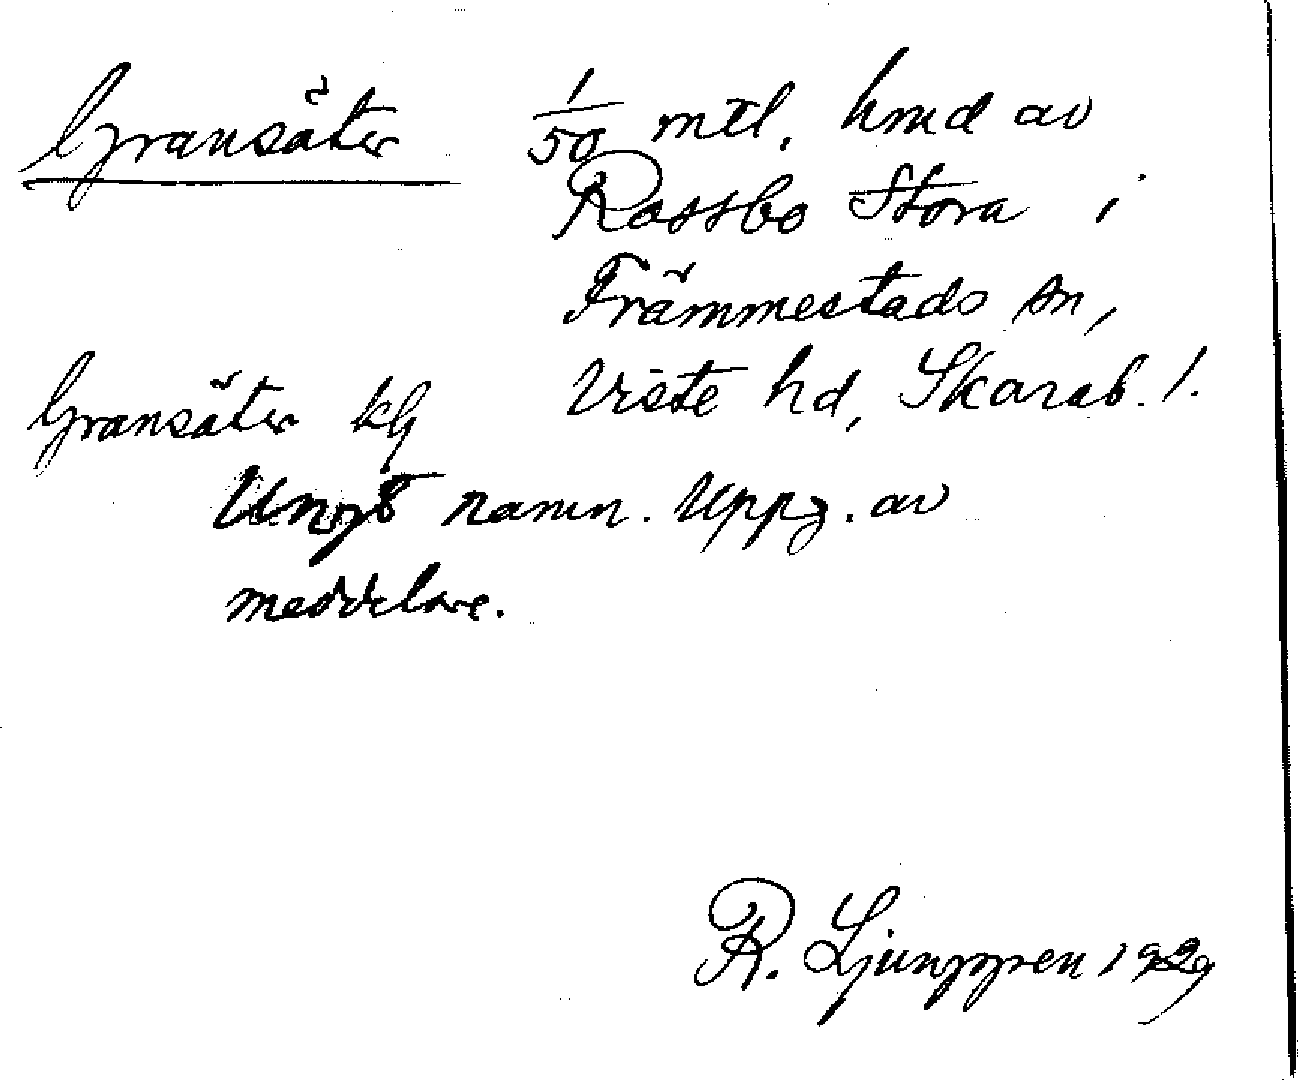 Gransäter 1/50 mtl. hmd av
Rossbo Stora i
Främmestads sn,
Viste hd, Skarab. l.
Gransäter klg
Ungt namn. Uppg. av
meddelare.
R. Ljunggren 1929